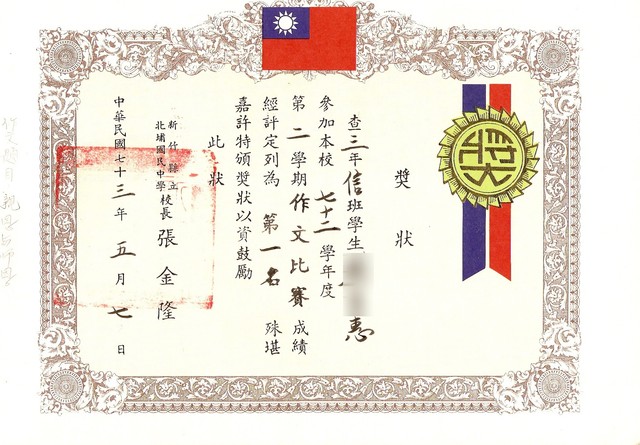 獎狀
查三年信班學生惠
參加本校七十二學年度
第二學期作文比賽成績
經評定列為第一名殊堪
嘉許特頒獎狀以資鼓勵
此狀
新竹縣立
北埔國民中學校長張金隆
中華民國七十三年五月七日
獎